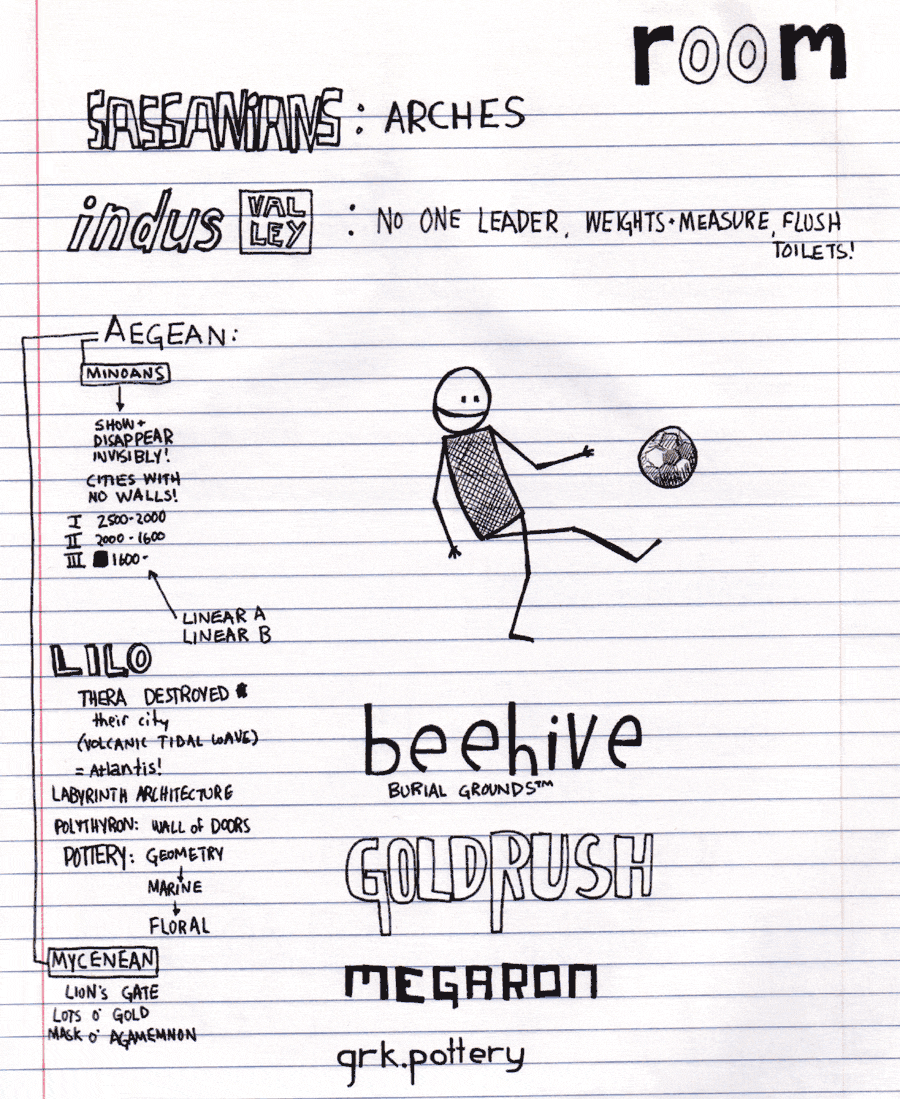 room
SASSANIANS: ARCHES
indus VALLEY : NO ONE LEADER, WEIGHTS+MEASURE, FLUSH
TOILETS!
AEGEAN:
MINOANS
SHOW+
DISAPPEAR
INVISIBLY!
CITIES WITH
NO WALLS!
I 2500-2000
II 2000-1600
III 1600-
LINEAR A
LINEAR B
LILO
THERA DESTROYED
their city
(VOLCANIC TIDAL WAVE)
= Atlantis!
LABYRINTH ARCHITECTURE
POLYTHYRON: WALL of DOORS
POTTERY: GEOMETRY
MARINE
FLORAL
MYCENEAN
LION'S GATE
LOTS O' GOLD
MASK O' AGAMEMNON
beehive
BURIAL GROUNDS™
GOLDRUSH
MEGARON
grk.pottery